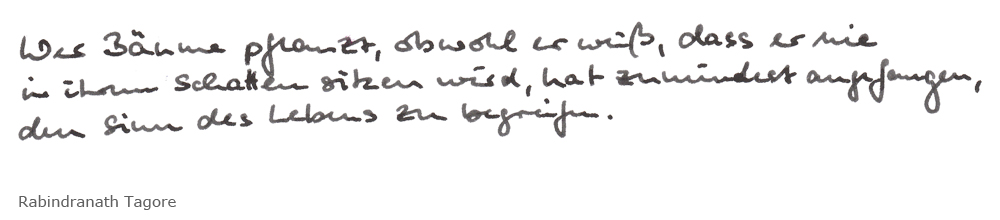 Wer Bäume pflanzt, obwohl er weiß, dass er nie
in ihrem Schatten sitzen wird, hat zumindest angefangen,
den Sinn des Lebens zu begreifen.
Rabindranath Tagore